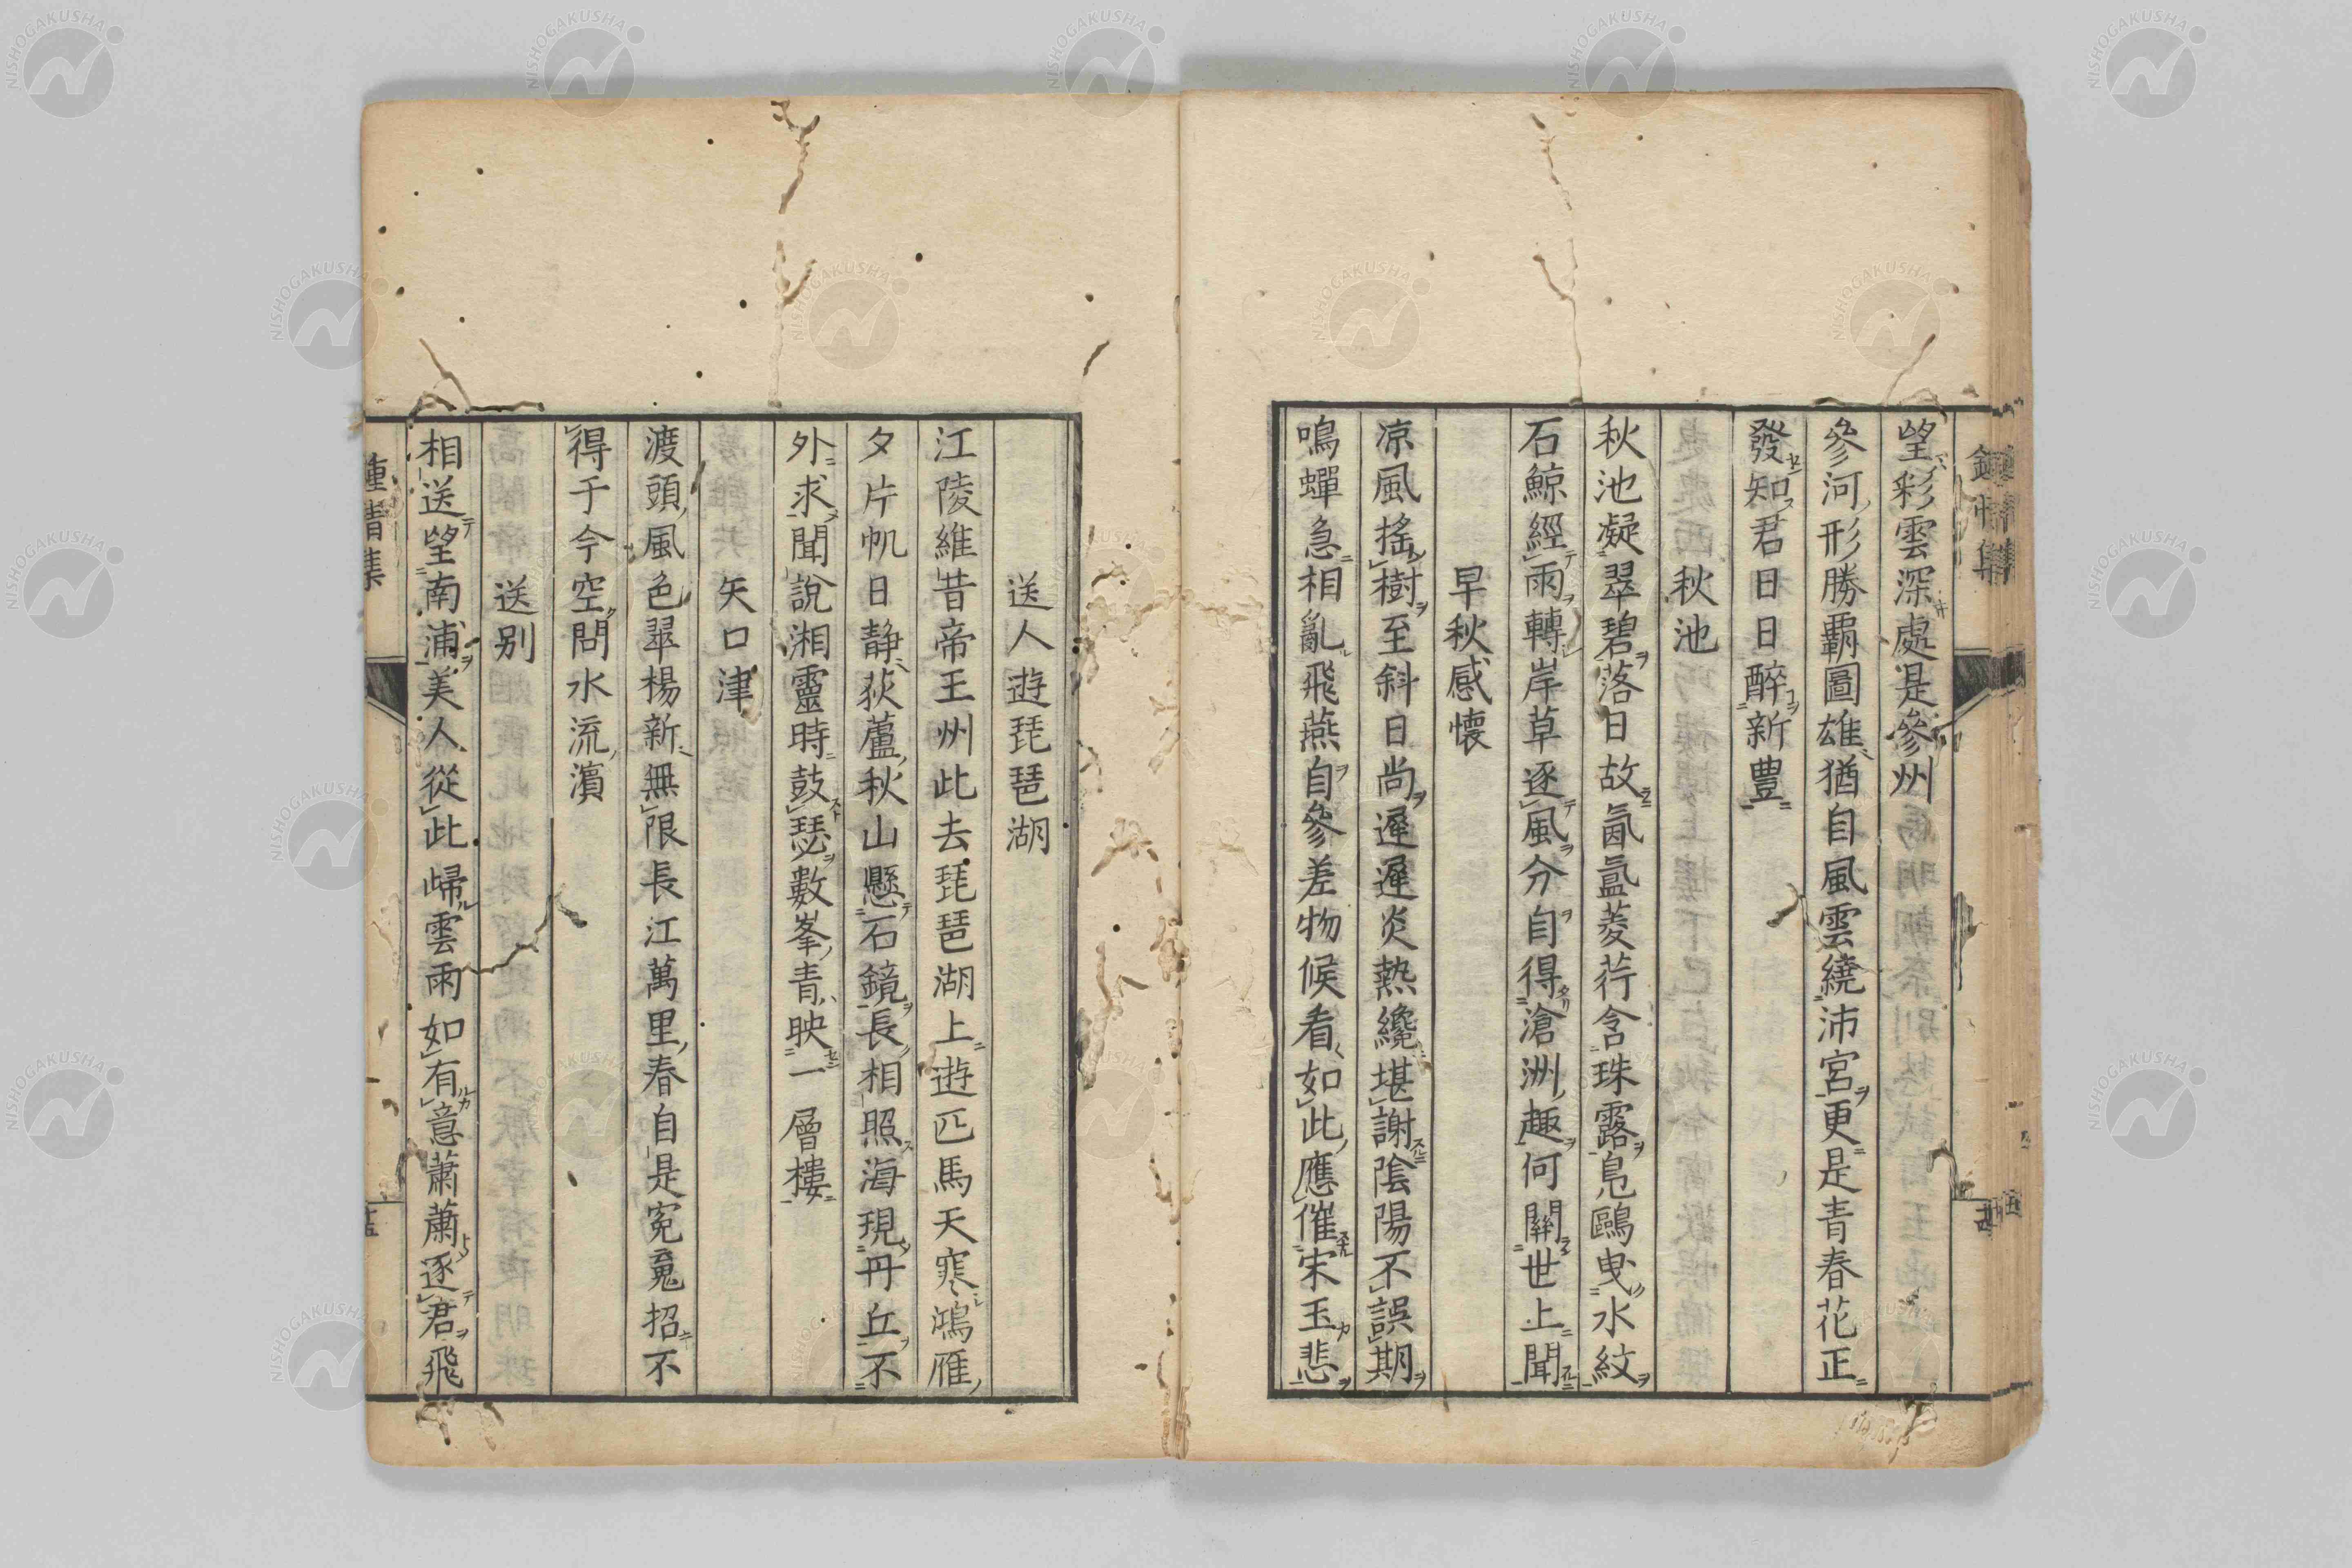 望彩雲深處是參州
參河形勝覇圖雄猶自風雲繞沛宮更是青春花正
發知君日日醉新豊
秋池
秋池凝翠碧落日故氤氳菱荇含珠露鳬鷗曳水紋
石鯨經雨轉岸草逐風分自得滄洲趣何關世上聞
早秋感懷
凉風搖樹至斜日尚遲遲炎熱纔堪謝陰陽不誤期
鳴蟬急相亂飛燕自參差物候看如此應催宋玉悲
送人遊琵琶湖
江陵維昔帝王州此去琵琶湖上遊匹馬天寒鴻雁
夕片帆日静荻蘆秋山懸石鏡長相照海現丹丘不
外求聞說湘靈時鼓瑟數峯青映一層樓
矢口津
渡頭風色翠楊新無限長江萬里春自是寃䰟招不
得于今空問水流濱
送别
相送望南浦美人從此歸雲雨如有意蕭蕭逐君飛
鍾情集